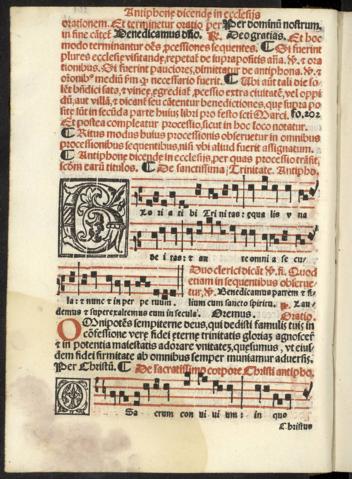 Antiphone dicende in ecclesijs
orationem. Et terminetur oratio per Per dominum nostrum.
in fine cātēt Benedicamus dño. ℞. Deo gratias. Et hoc
modo terminantur oēs ꝓcessiones sequentes. ¶ Si fuerint
plures ecclesie visitande, repetāt de suprapositis aña. ℣. ⁊ ora
tionibus. Si fuerint pauciores, dimittātur de antiphona. ℣. ⁊
orōnibꝰ mediū fm ꝙ necessario fuerit. ¶ Ubi aūt tali die so-
let bñdici sata, ⁊ vinee, ⁊ egrediāt ꝓcessio extra ciuitatē, vel oppi
dū, aut villā, ⁊ dicant seu cātentur benedictiones, que supra po
site sūt in secūda parte huius libri pro festo scti Marci. fo.202
Et postea compleatur processio, sicut in hoc loco notatur.
¶ Ritus modus huius processionis obseruetur in omnibus
processionibus sequentibus, nisi vbi aliud fuerit assignatum.
¶ Antiphone dicende in ecclesijs, per quas processio trāsit,
scdm earū titulos. ¶ De sanctissima Trinitate. Antipho.
G Lo ri a ti bi Tri ni tas: equa lis v na
de i tas: ⁊ an te omni a se cu-
Duo clerici dicāt ℣. fi. Quod
etiam in sequentibus obserue-
la: ⁊ nunc ⁊ in per pe tuum. tur. ℣. Benedicamus patrem ⁊ fi-
lium cum sancto spiritu. ℞. Lau-
demus ⁊ superexaltemus eum in secula. Oremus. Oratio.
OMnipotēs sempiterne deus, qui dedisti famulis tuis in
cōfessione vere fidei eterne trinitatis gloriā agnoscere
⁊ in potentia maiestatis adorare vnitatē, quesumus, vt eius-
dem fidei firmitate ab omnibus semper muniamur aduersis.
Per Christū. ¶ De sacratissimo corpore Christi antipho.
O Sa crum con ui ui um: in quo
Christus